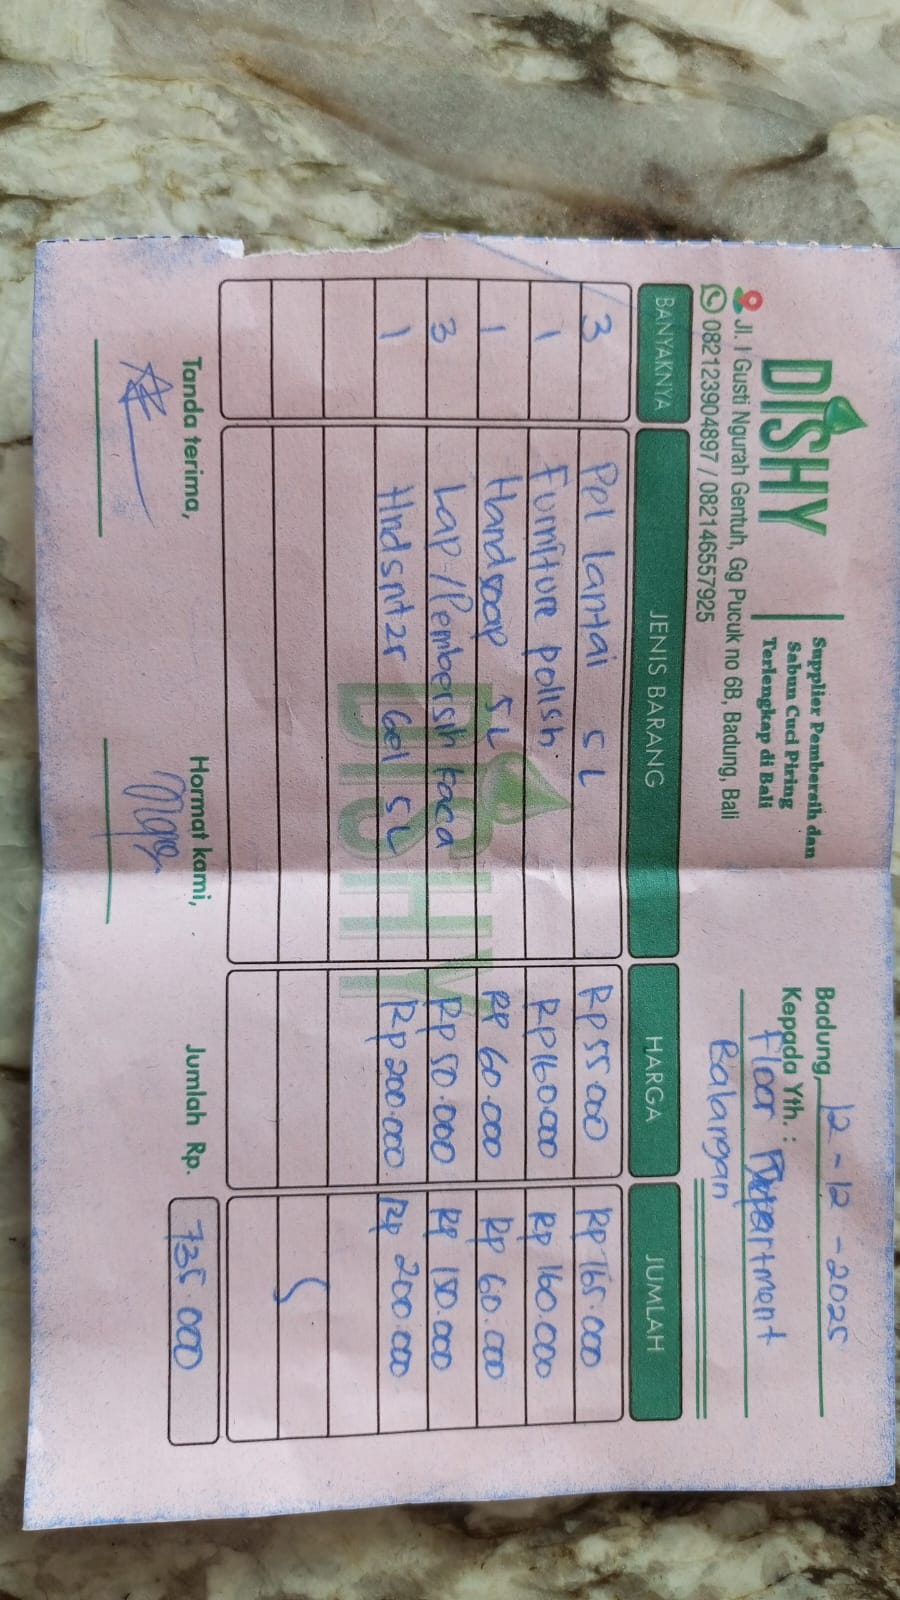 DISHY
Supplier Pembersih dan
Sabun Cuci Piring
Terlengkap di Bali
Jl. I Gusti Ngurah Gentuh, Gg Pucuk no 6B, Badung, Bali
082123904897 / 082146557925
Badung, 12-12-2025
Kepada Yth. :
Floor Department
Balangan
BANYAKNYA JENIS BARANG HARGA JUMLAH
3 Pel lantai 5L Rp 55000 Rp 165.000
1 Furniture polish Rp160.000 Rp 160.000
1 Handsoap 5L Rp 60.000 Rp 60.000
3 Lap/Pembersih kaca Rp 50.000 Rp 150.000
1 Hndsntzr Gel 5L Rp 200.000 Rp 200.000
DISHY
Tanda terima, Hormat kami, Jumlah Rp. 735.000